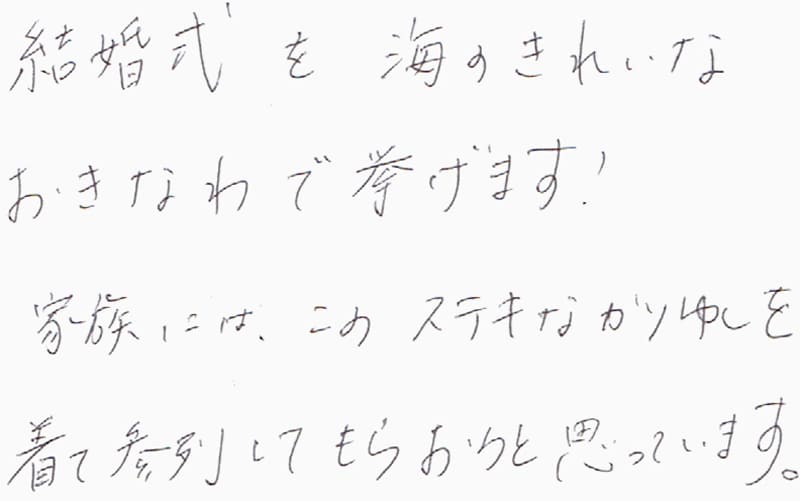 結婚式を海のきれいな
おきなわで挙げます!
家族には、このステキなかりゆしを
着て参列してもらおうと思っています。